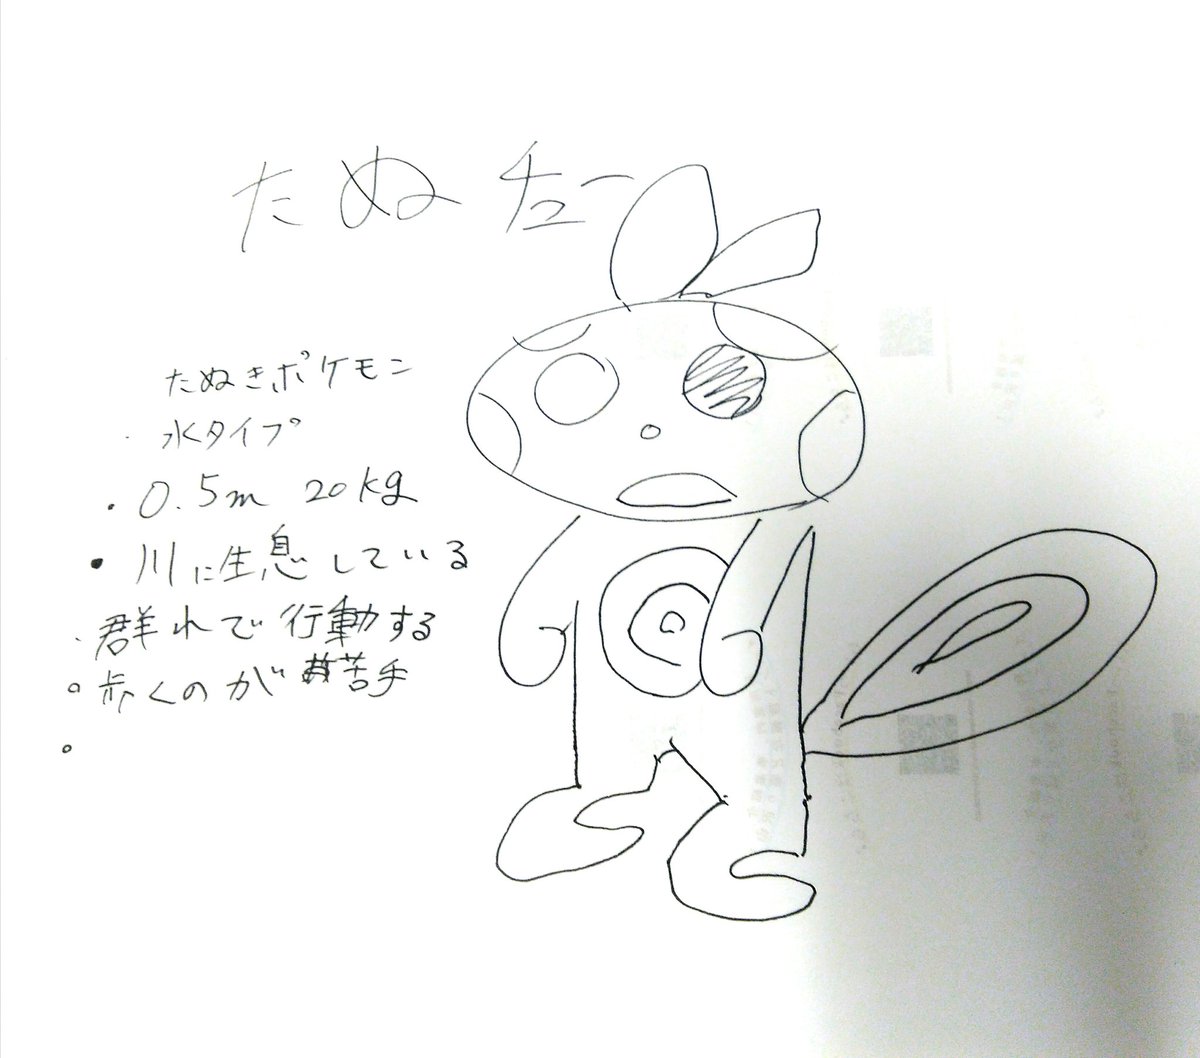 たぬチュー
たぬきポケモン
・水タイプ
・0.5m 20kg
・川に生息している
・群れで行動する
。歩くのが苦手